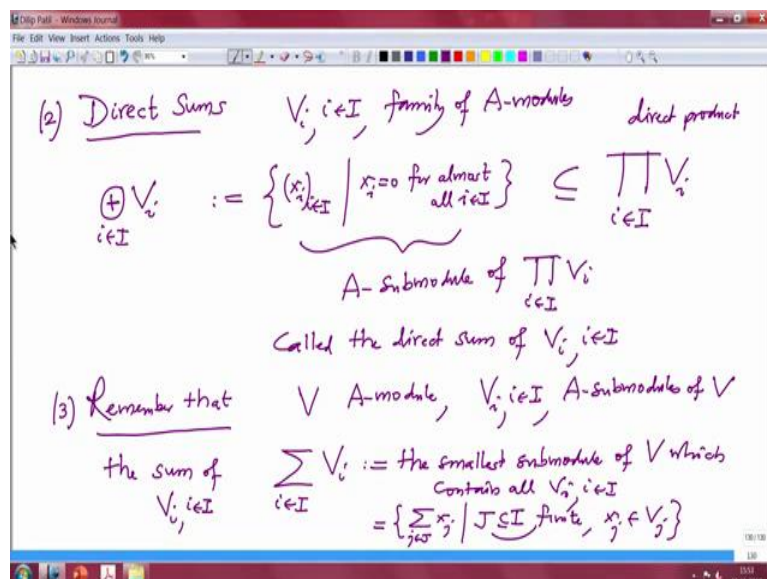 Dilip Patil - Windows Journal
File Edit View Insert Actions Tools Help
(2) Direct Sums V_i, i∈I, family of A-modules direct product
⊕_{i∈I} V_i := {(x_i)_{i∈I} | x_i=0 for almost all i∈I} ⊆ ∏_{i∈I} V_i
A-submodule of ∏_{i∈I} V_i
Called the direct sum of V_i, i∈I
(3) Remember that V A-module, V_i, i∈I, A-submodules of V
the sum of V_i, i∈I ∑_{i∈I} V_i := the smallest submodule of V which
contains all V_i, i∈I
= {∑_{j∈J} x_j | J⊆I finite, x_j ∈ V_j}
130/130
130
15:53